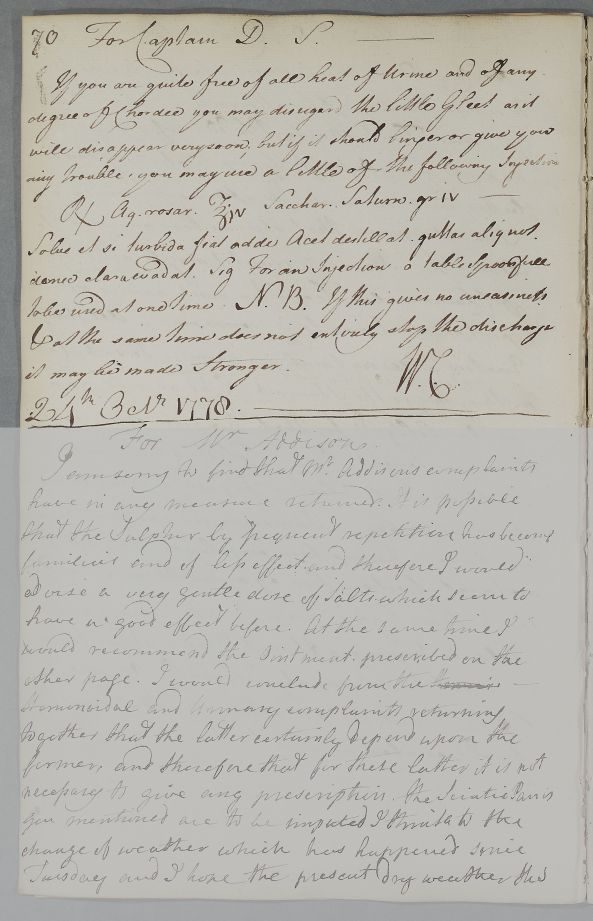 70 For Captain D. S.
If you are quite free of all heat of Urine and of any
degree of Chordee you may disregard the little Gleet as it
will disappear very soon, but if it should linger or give you
any trouble, you may use a little of the following Injection
℞ Aq. rosar. ℥iv Sacchar. Saturn. gr iv
Solve et si turbida fiat adde Acet destillat. guttas aliquot.
donec clara evadat. Sig For an Injection a table Spoonfull
to be used at one time. N.B. If this gives no uneasiness
& at the same time does not entirely stop the discharge
it may be made Stronger. W.C.
24th 1778.
For Mr Addison.
I am sorry to find that Mr Addisons complaints
have in any measure returned. It is possible
that the Sulphur by frequent repetition has become
familiar and of less effect and therefore I would
advise a very gentle dose of Salts which seem to
have a good effect before. At the same time I
would recommend the Ointment prescribed on the
other page. I would conclude from the
Hamorroidal and Urinary complaints returning
together that the latter certainly depend upon the
former, and therefore that for these latter it is not
necessary to give any prescription. the Sciatic Pains
you mentioned are to be imputed I think to the
change of weather which has happened since
Tuesday and I hope the present dry weather this